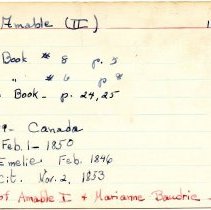 Amable (II) 1
Book # 8 p. 5
" # 6 p. 8
Book - p. 24, 25
9 - Canada
Feb. 1 - 1850
Emelie Feb. 1846
Cit. Nov. 2, 1853
of Amable I & Marianne Baudrie